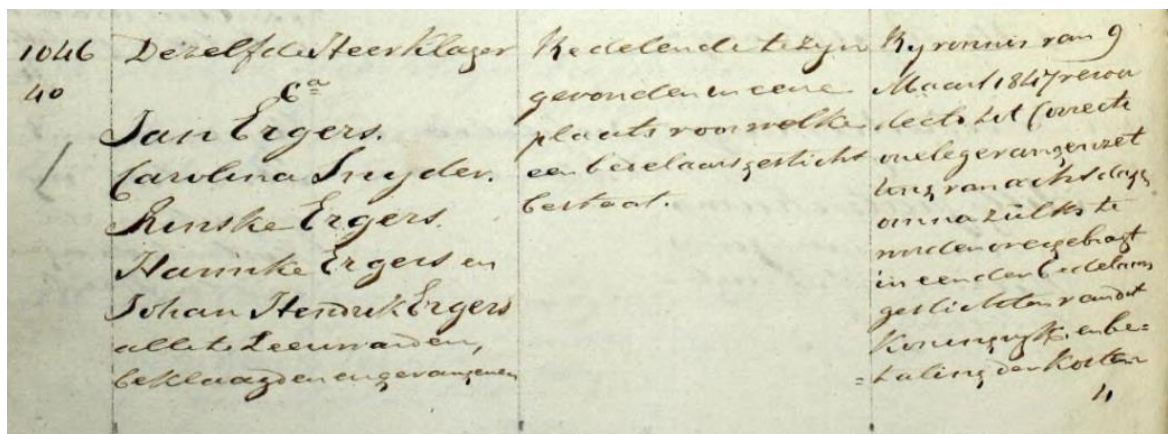 1046
40
Dezelfde Heer Klager
Ca
Jan Ergers.
Carolina Snyder.
Rinske Ergers.
Hannike Ergers en
Johan Hendrik Ergers
alle te Leeuwarden,
beklaagden en gevangenen
Bedelende te zyn
gevonden in eene
plaats voor welke
een bedelaarsgesticht
bestaat.
By vonnis van 9
Maart 1847 veroor
deelt tot Correcti
onele gevangenzet
ting van acht dagen
om na zulks te
worden overgebragt
in een der bedelaars
gestichten van dit
Koningryk, en be=
=taling der Kosten